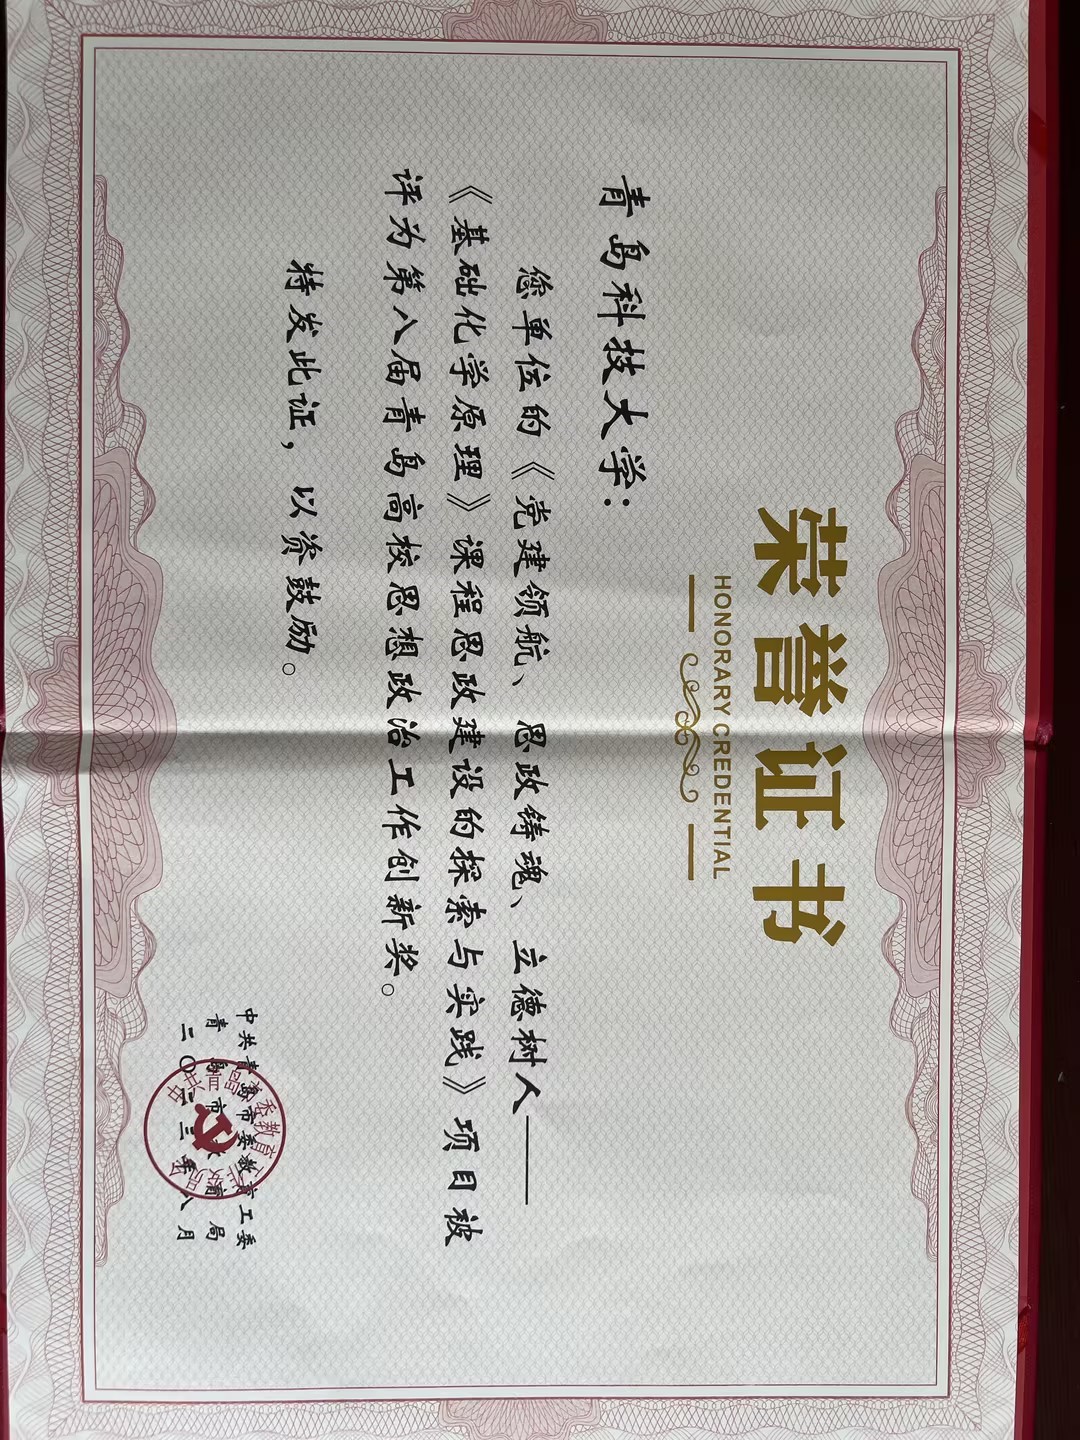 荣誉证书
HONORARY CREDENTIAL
青岛科技大学：
您单位的《党建领航、思政铸魂、立德树人——
《基础化学原理》课程思政建设的探索与实践》项目被
评为第八届青岛高校思想政治工作创新奖。
特发此证，以资鼓励。
中共青岛市委教育工委
青岛市教育局
二〇二三年八月
中共青岛市委教育工作委员会